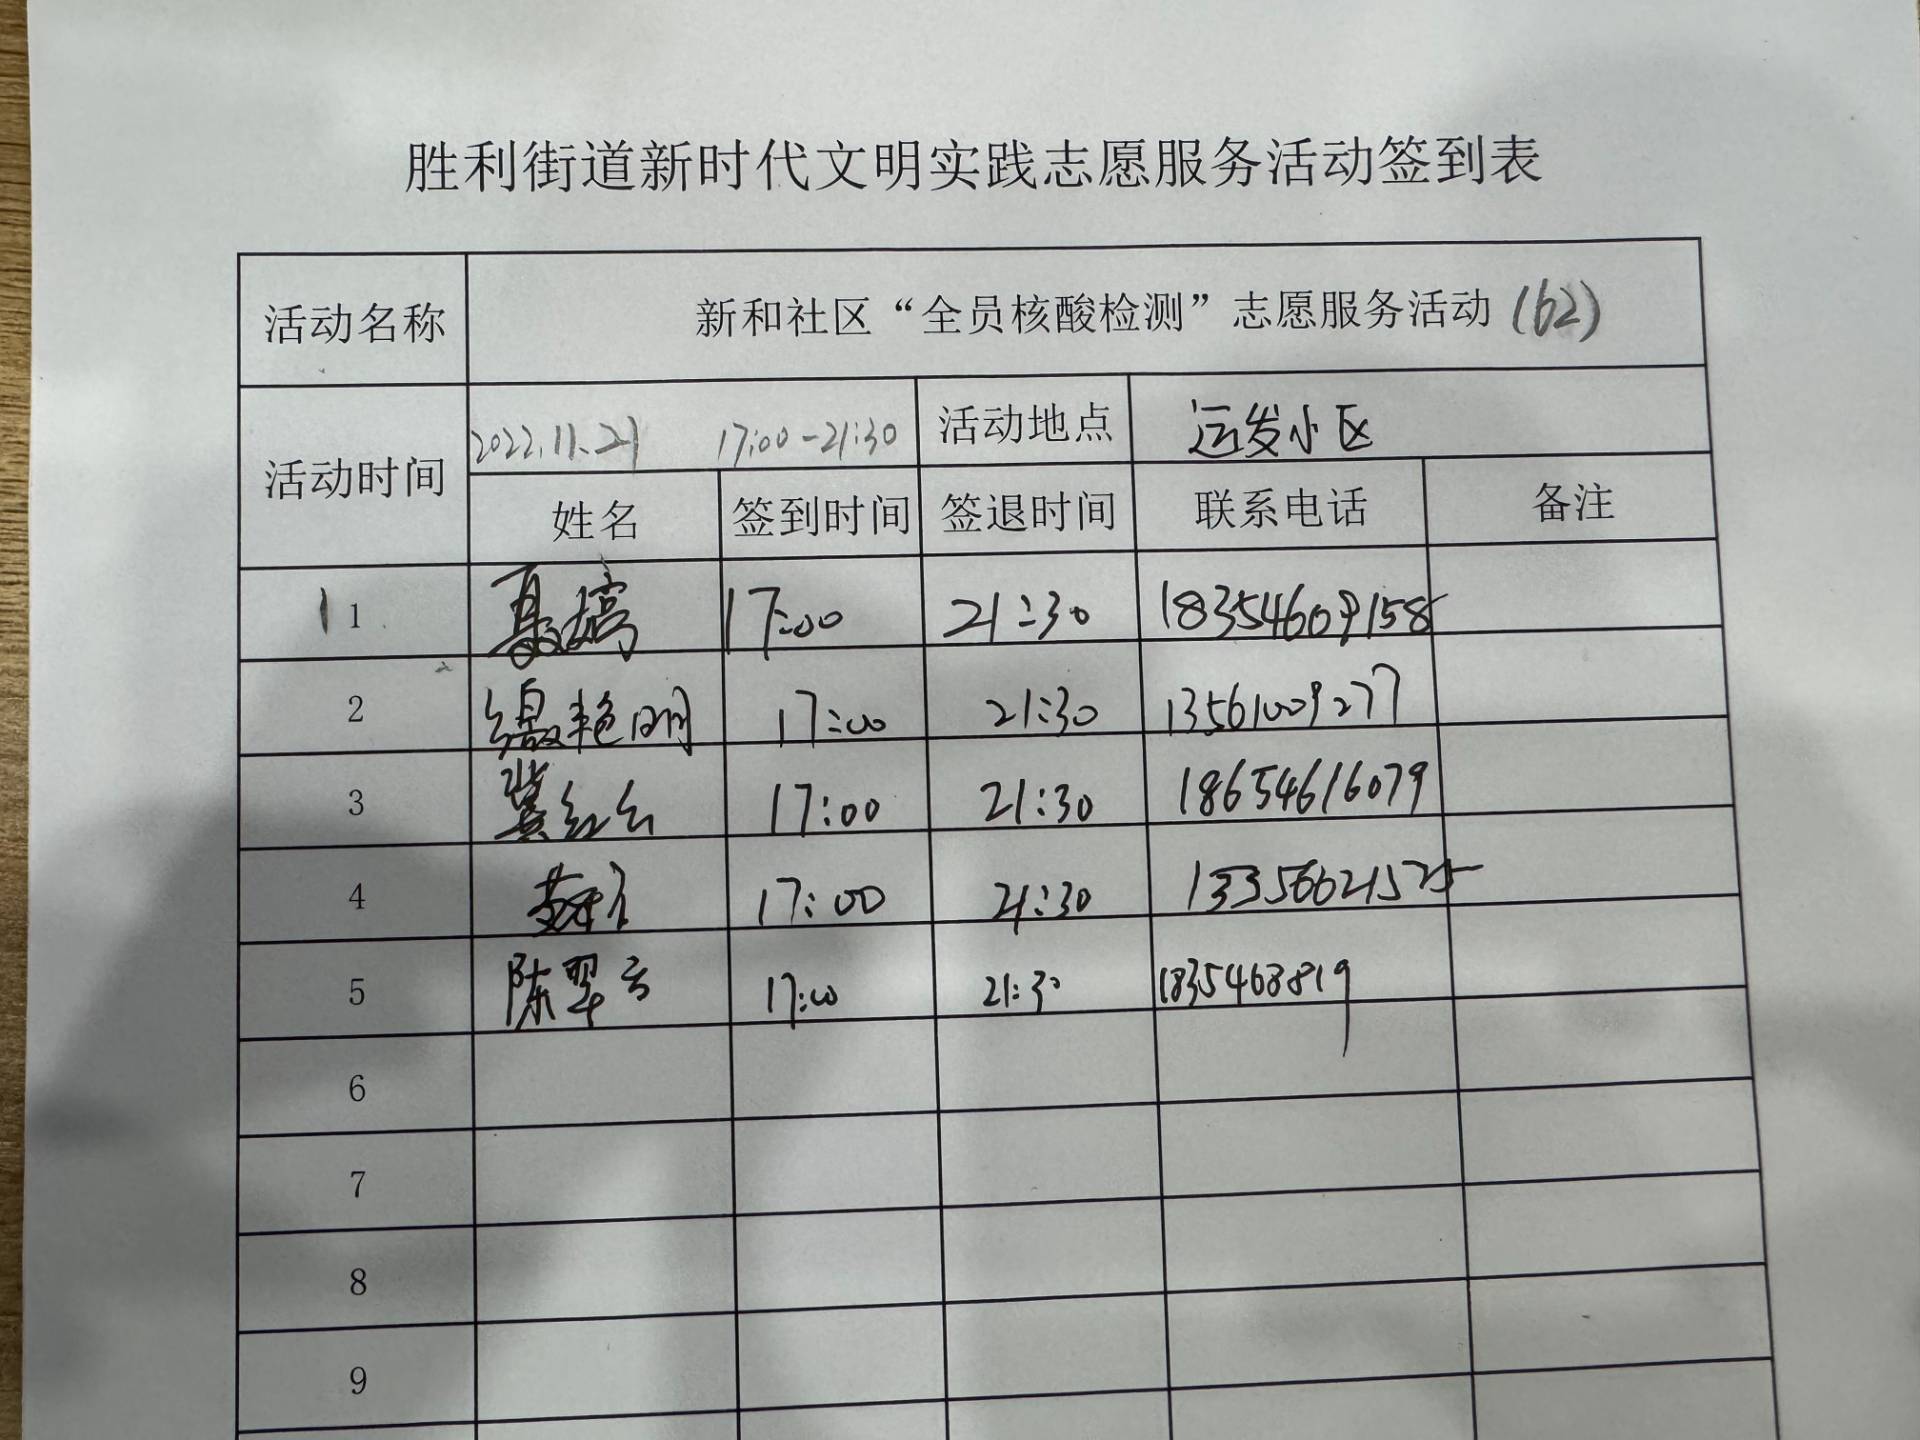 胜利街道新时代文明实践志愿服务活动签到表
活动名称 新和社区“全员核酸检测”志愿服务活动 (62)
活动时间 2022.11.21 17:00-21:30 活动地点 运发小区
姓名 签到时间 签退时间 联系电话 备注
1 17:00 21:30 18354609158
2 缐艳明 17:00 21:30 13561009277
3 冀红云 17:00 21:30 18654616079
4 17:00 21:30 13356621525
5 陈翠云 17:00 21:30 1835463819
6
7
8
9